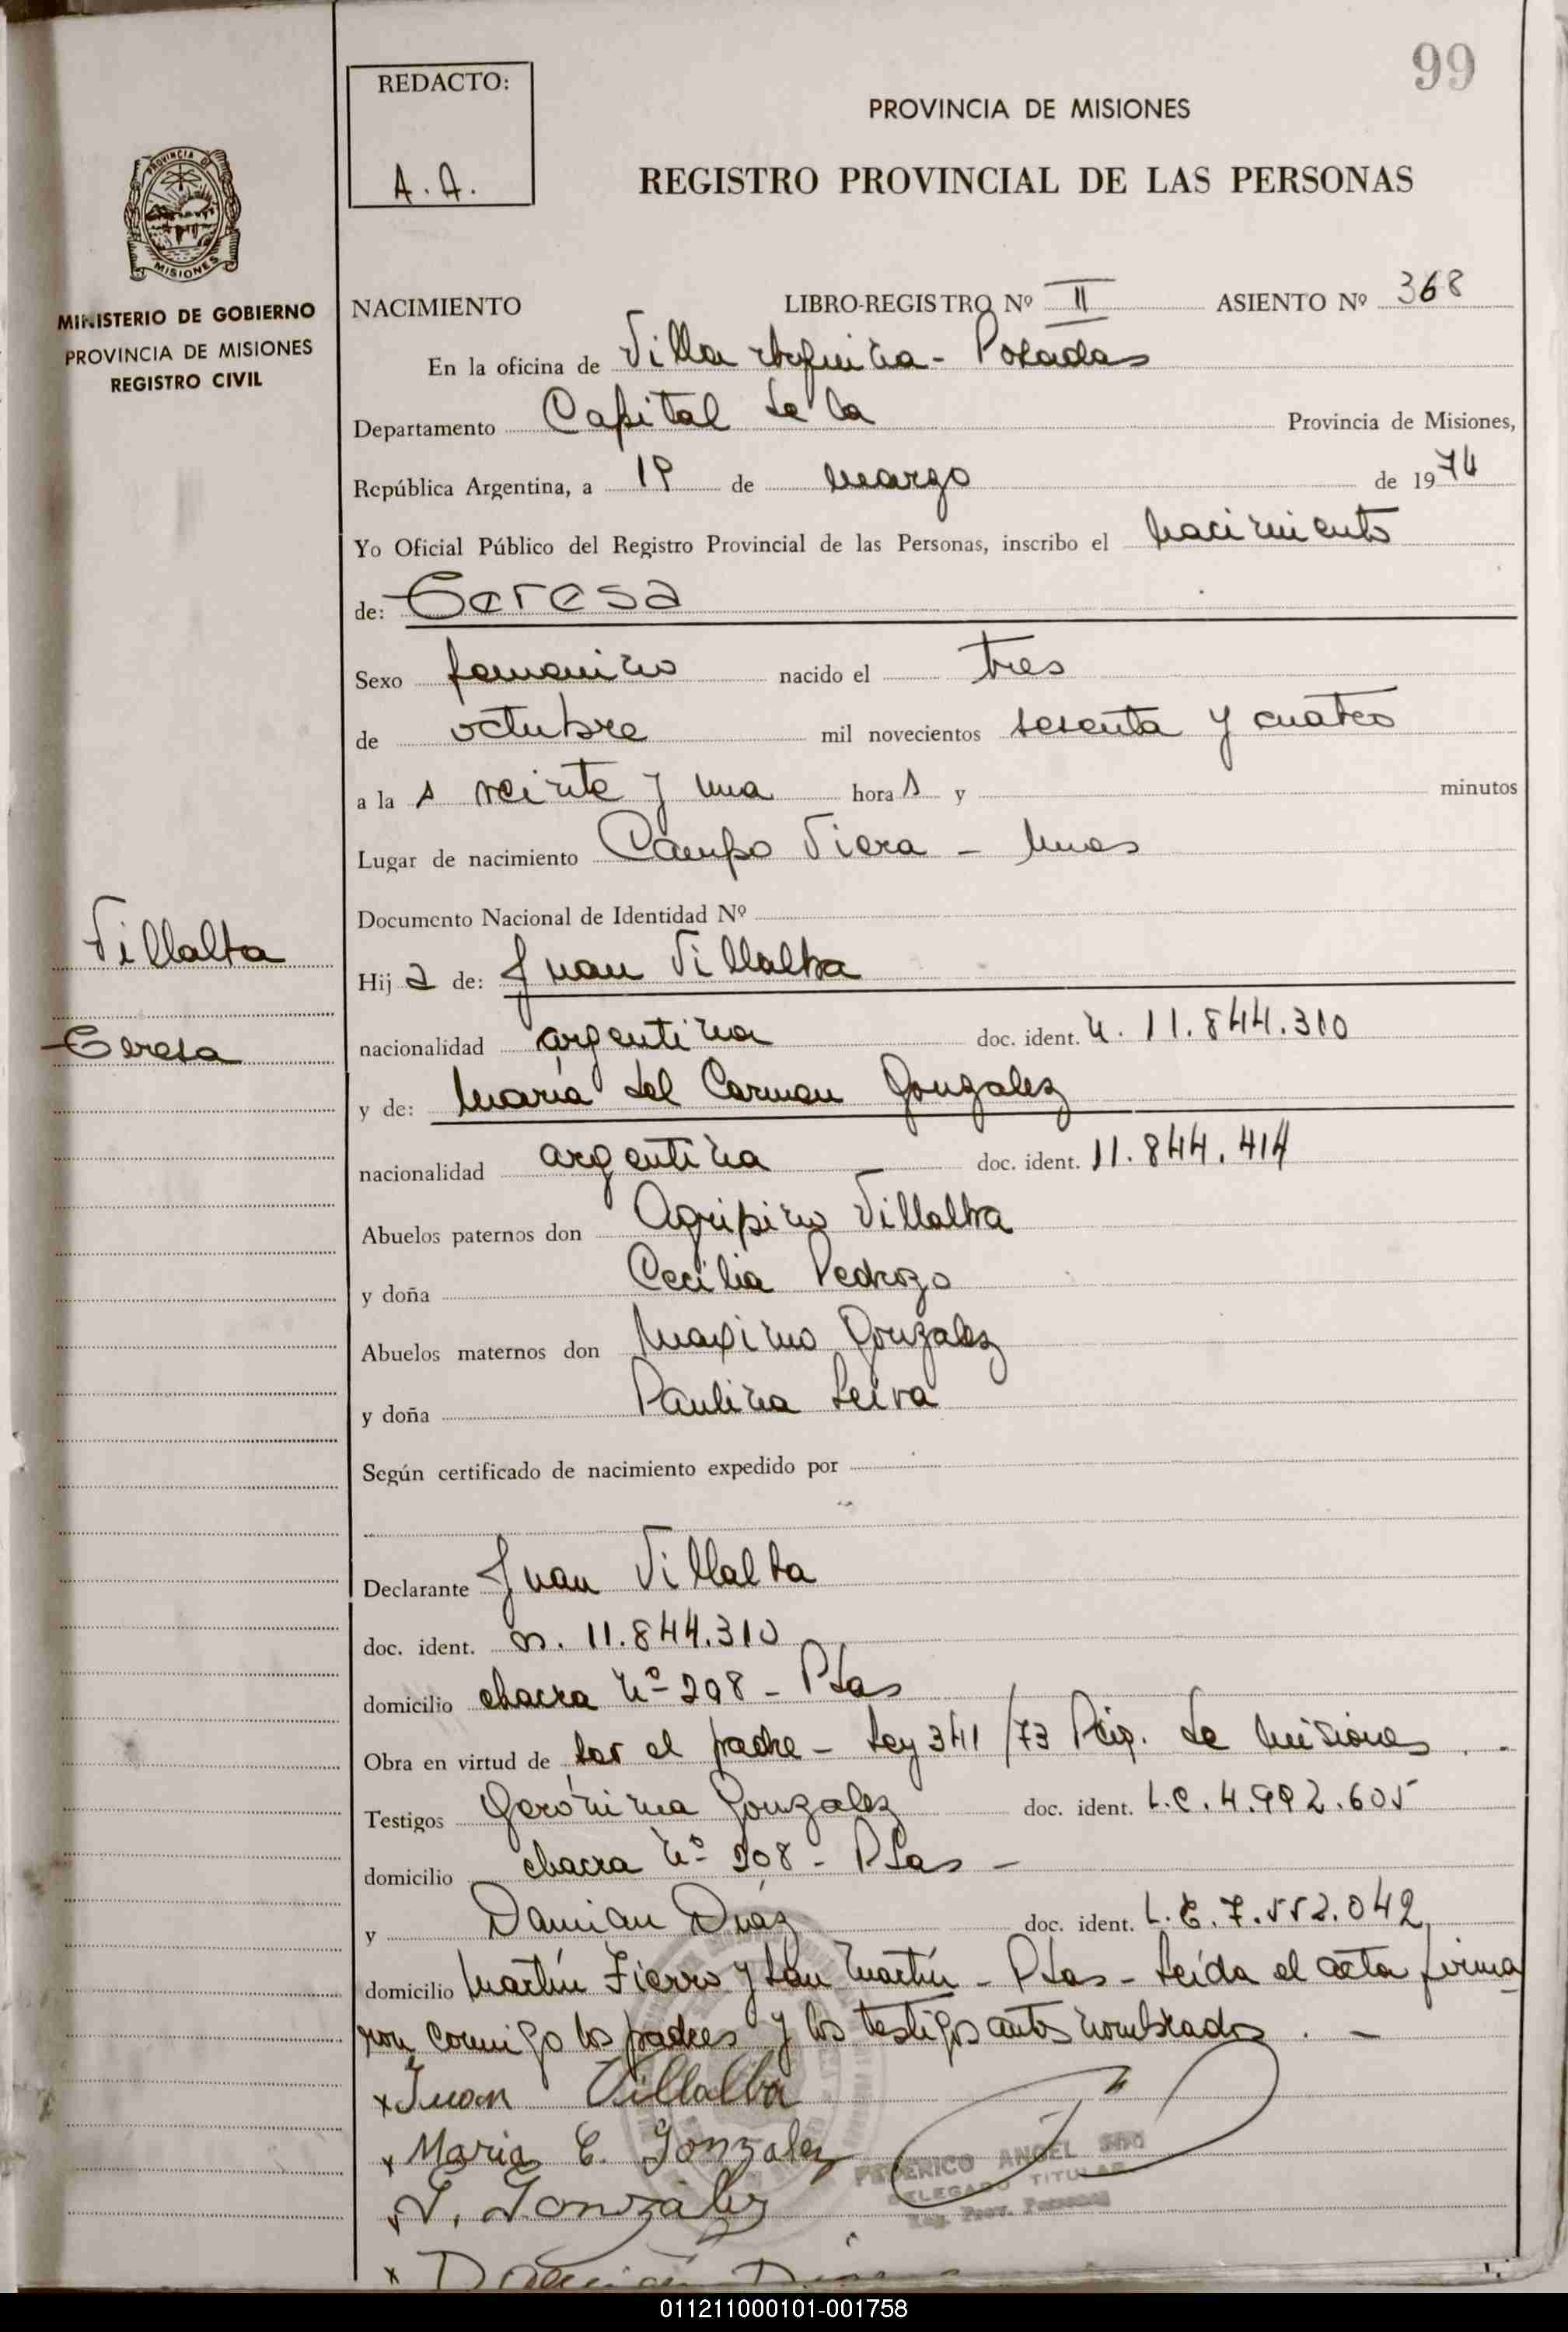 99
REDACTO:
A.A.
PROVINCIA DE MISIONES
REGISTRO PROVINCIAL DE LAS PERSONAS
PROVINCIA DE
MISIONES
MINISTERIO DE GOBIERNO
PROVINCIA DE MISIONES
REGISTRO CIVIL
NACIMIENTO LIBRO-REGISTRO Nº II ASIENTO Nº 368
En la oficina de Villa - Posadas
Departamento Capital de la Provincia de Misiones,
República Argentina, a 19 de marzo de 1974
Yo Oficial Público del Registro Provincial de las Personas, inscribo el nacimiento
de: Teresa
Sexo femenino nacido el tres
de octubre mil novecientos sesenta y cuatro
a la s veinte y una hora s y minutos
Lugar de nacimiento Campo Viera - Mnes
Documento Nacional de Identidad Nº
Villalba
Teresa
Hij a de: Juan Villalba
nacionalidad argentina doc. ident. n. 11.844.310
y de: María del Carmen Gonzalez
nacionalidad argentina doc. ident. 11.844.414
Abuelos paternos don Agripino Villalba
y doña Cecilia Pedrozo
Abuelos maternos don Maximo Gonzalez
y doña Paulina Leiva
Según certificado de nacimiento expedido por
Declarante Juan Villalba
doc. ident. n. 11.844.310
domicilio chacra Nº 208 - Pdas
Obra en virtud de ser el padre - Ley 341/73 de Misiones . -
Testigos Gerónima Gonzalez doc. ident. L.C. 4.992.605
domicilio chacra Nº 208 - Pdas -
y Damian Diaz doc. ident. L.E. 7.552.042
domicilio Martín Fierro y San Martín - Pdas - Leída el acta firma
ron conmigo los padres y los testigos antes nombrados . -
x Juan Villalba
x Maria C. Gonzalez
FEDERICO ANGEL
DELEGADO TITULAR
Reg. Prov. Personas
x G. González
x Damián Diaz
011211000101-001758